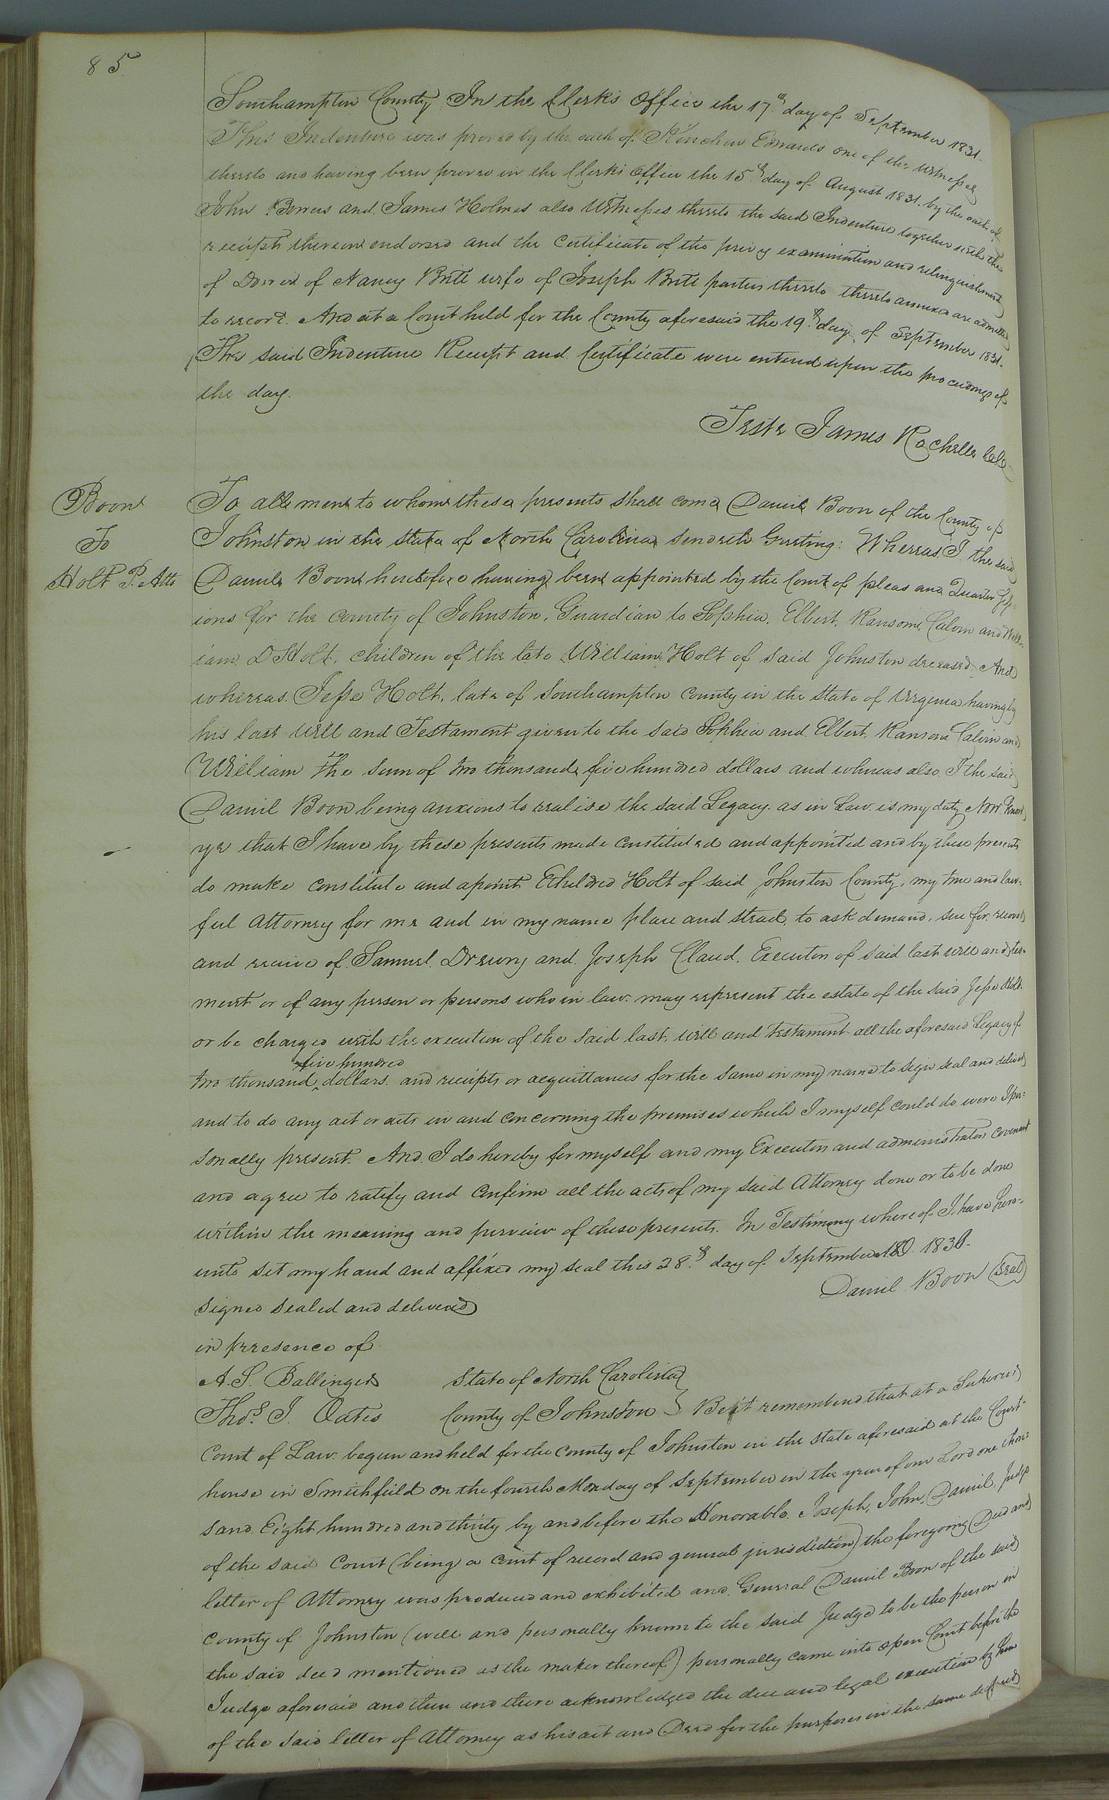 85
Southampton County In the Clerk's Office the 17th day of September 1831.
This Indenture was proved by the oath of Kinchen Edwards one of the witnesses
thereto and having been proved in the Clerk's Office the 15th day of August 1831. by the oath of
John Bowers and James Holmes also Witnesses thereto the said Indenture together with the
receipt thereon endorsed and the Certificate of the privy examination and relinquishment
of Dower of Nancy Brite wife of Joseph Brite parties thereto thereto annexed are admitted
to record. And at a Court held for the County aforesaid the 19th day of September 1831.
The said Indenture Receipt and Certificate were entered upon the proceedings of
the day.
Teste James Rochelle
Boon
To
Holt P. Atto
To all men to whom these presents shall come Daniel Boon of the County of
Johnston in the State of North Carolina sendeth Greeting: Whereas I the said
Daniel Boon heretofore having been appointed by the Court of pleas and Quarter Sess
ions for the county of Johnston, Guardian to Sophia, Elbert, Ransom, Calvin and Will
iam D Holt, children of the late William Holt of said Johnston deceased. And
whereas Jesse Holt, late of Southampton County in the State of Virginia having by
his last will and Testament given to the said Sophia and Elbert, Ransom Calvin and
William the sum of two thousand five hundred dollars and whereas also I the said
Daniel Boon being anxious to realise the said Legacy as in Law is my duty Now Know
ye that I have by these presents made constituted and appointed and by these presents
do make constitute and apoint Etheldred Holt of said Johnston County, my true and law-
ful Attorney for me and in my name place and stead, to ask demand, sue for, recover
and receive of Samuel Drewry and Joseph Claud, Executors of said last will and tes-
ment or of any person or persons who in law may represent the estate of the said Jesse Holt
or be charged with the execution of the said last will and testament all the aforesaid Legacy of
five hundred
two thousand dollars. and receipts or acquittances for the same in my name to sign seal and deliver
and to do any act or acts in and concerning the premises which I myself could do were I per-
sonally present. And I do hereby for myself and my Executors and administrators covenant
and agree to ratify and confirm all the acts of my said Attorney done or to be done
within the meaning and purview of these presents. In Testimony whereof I have here-
unto set my hand and affixed my seal this 28th day of September 1830.
Daniel Boon (Seal)
Signed Sealed and delivered
in presence of
A. S. Ballinger
Thos. I. Oates
State of North Carolina
County of Johnston } Be it remembered that at a Superior
Court of Law begun and held for the County of Johnston in the State aforesaid at the Court
house in Smithfield on the fourth Monday of September in the year of our Lord one thou-
sand Eight hundred and thirty by and before the Honorable Joseph, John, Daniel, Judge
of the said Court (being a court of record and general jurisdiction) the foregoing Deed and
letter of Attorney was produced and exhibited and General Daniel Boon of the said
County of Johnston (well and personally known to the said Judge to be the person in
the said deed mentioned as the maker thereof) personally came into open Court before the
Judge aforesaid and then and there acknowledged the due and legal execution by him
of the said letter of Attorney as his act and Deed for the purposes in the same defined